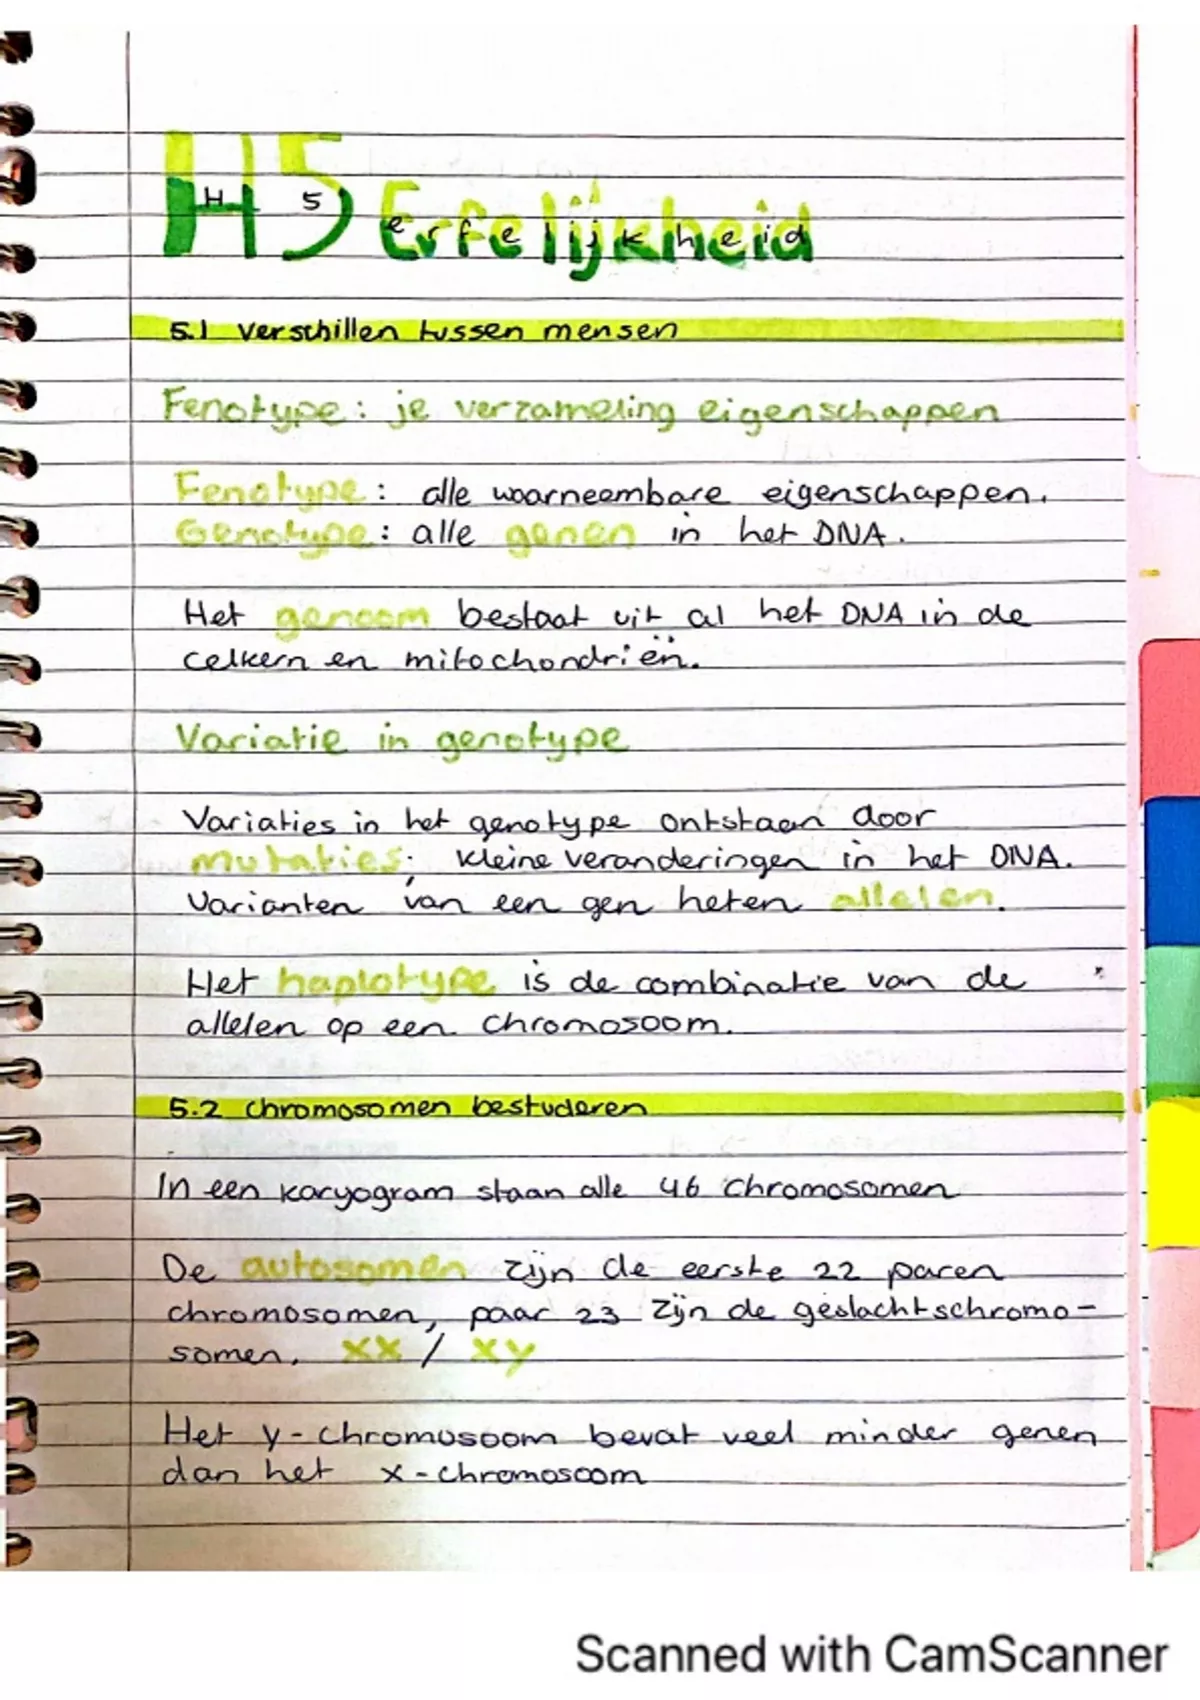 H5 Erfelijkheid
5.1 verschillen tussen mensen
Fenotype: je verzameling eigenschappen
Fenotype: alle waarneembare eigenschappen.
Genotype: alle genen in het DNA.
Het genoom bestaat uit al het DNA in de
celkern en mitochondriën.
Variatie in genotype
Variaties in het genotype ontstaan door
mutaties: kleine veranderingen in het DNA.
Varianten van een gen heten allelen.
Het haplotype is de combinatie van de
allelen op een chromosoom.
5.2 chromosomen bestuderen
In een karyogram staan alle 46 chromosomen
De autosomen zijn de eerste 22 paren
chromosomen, paar 23 zijn de geslachtschromo-
somen. XX / XY
Het y-chromosoom bevat veel minder genen
dan het x-chromosoom
Scanned with CamScanner